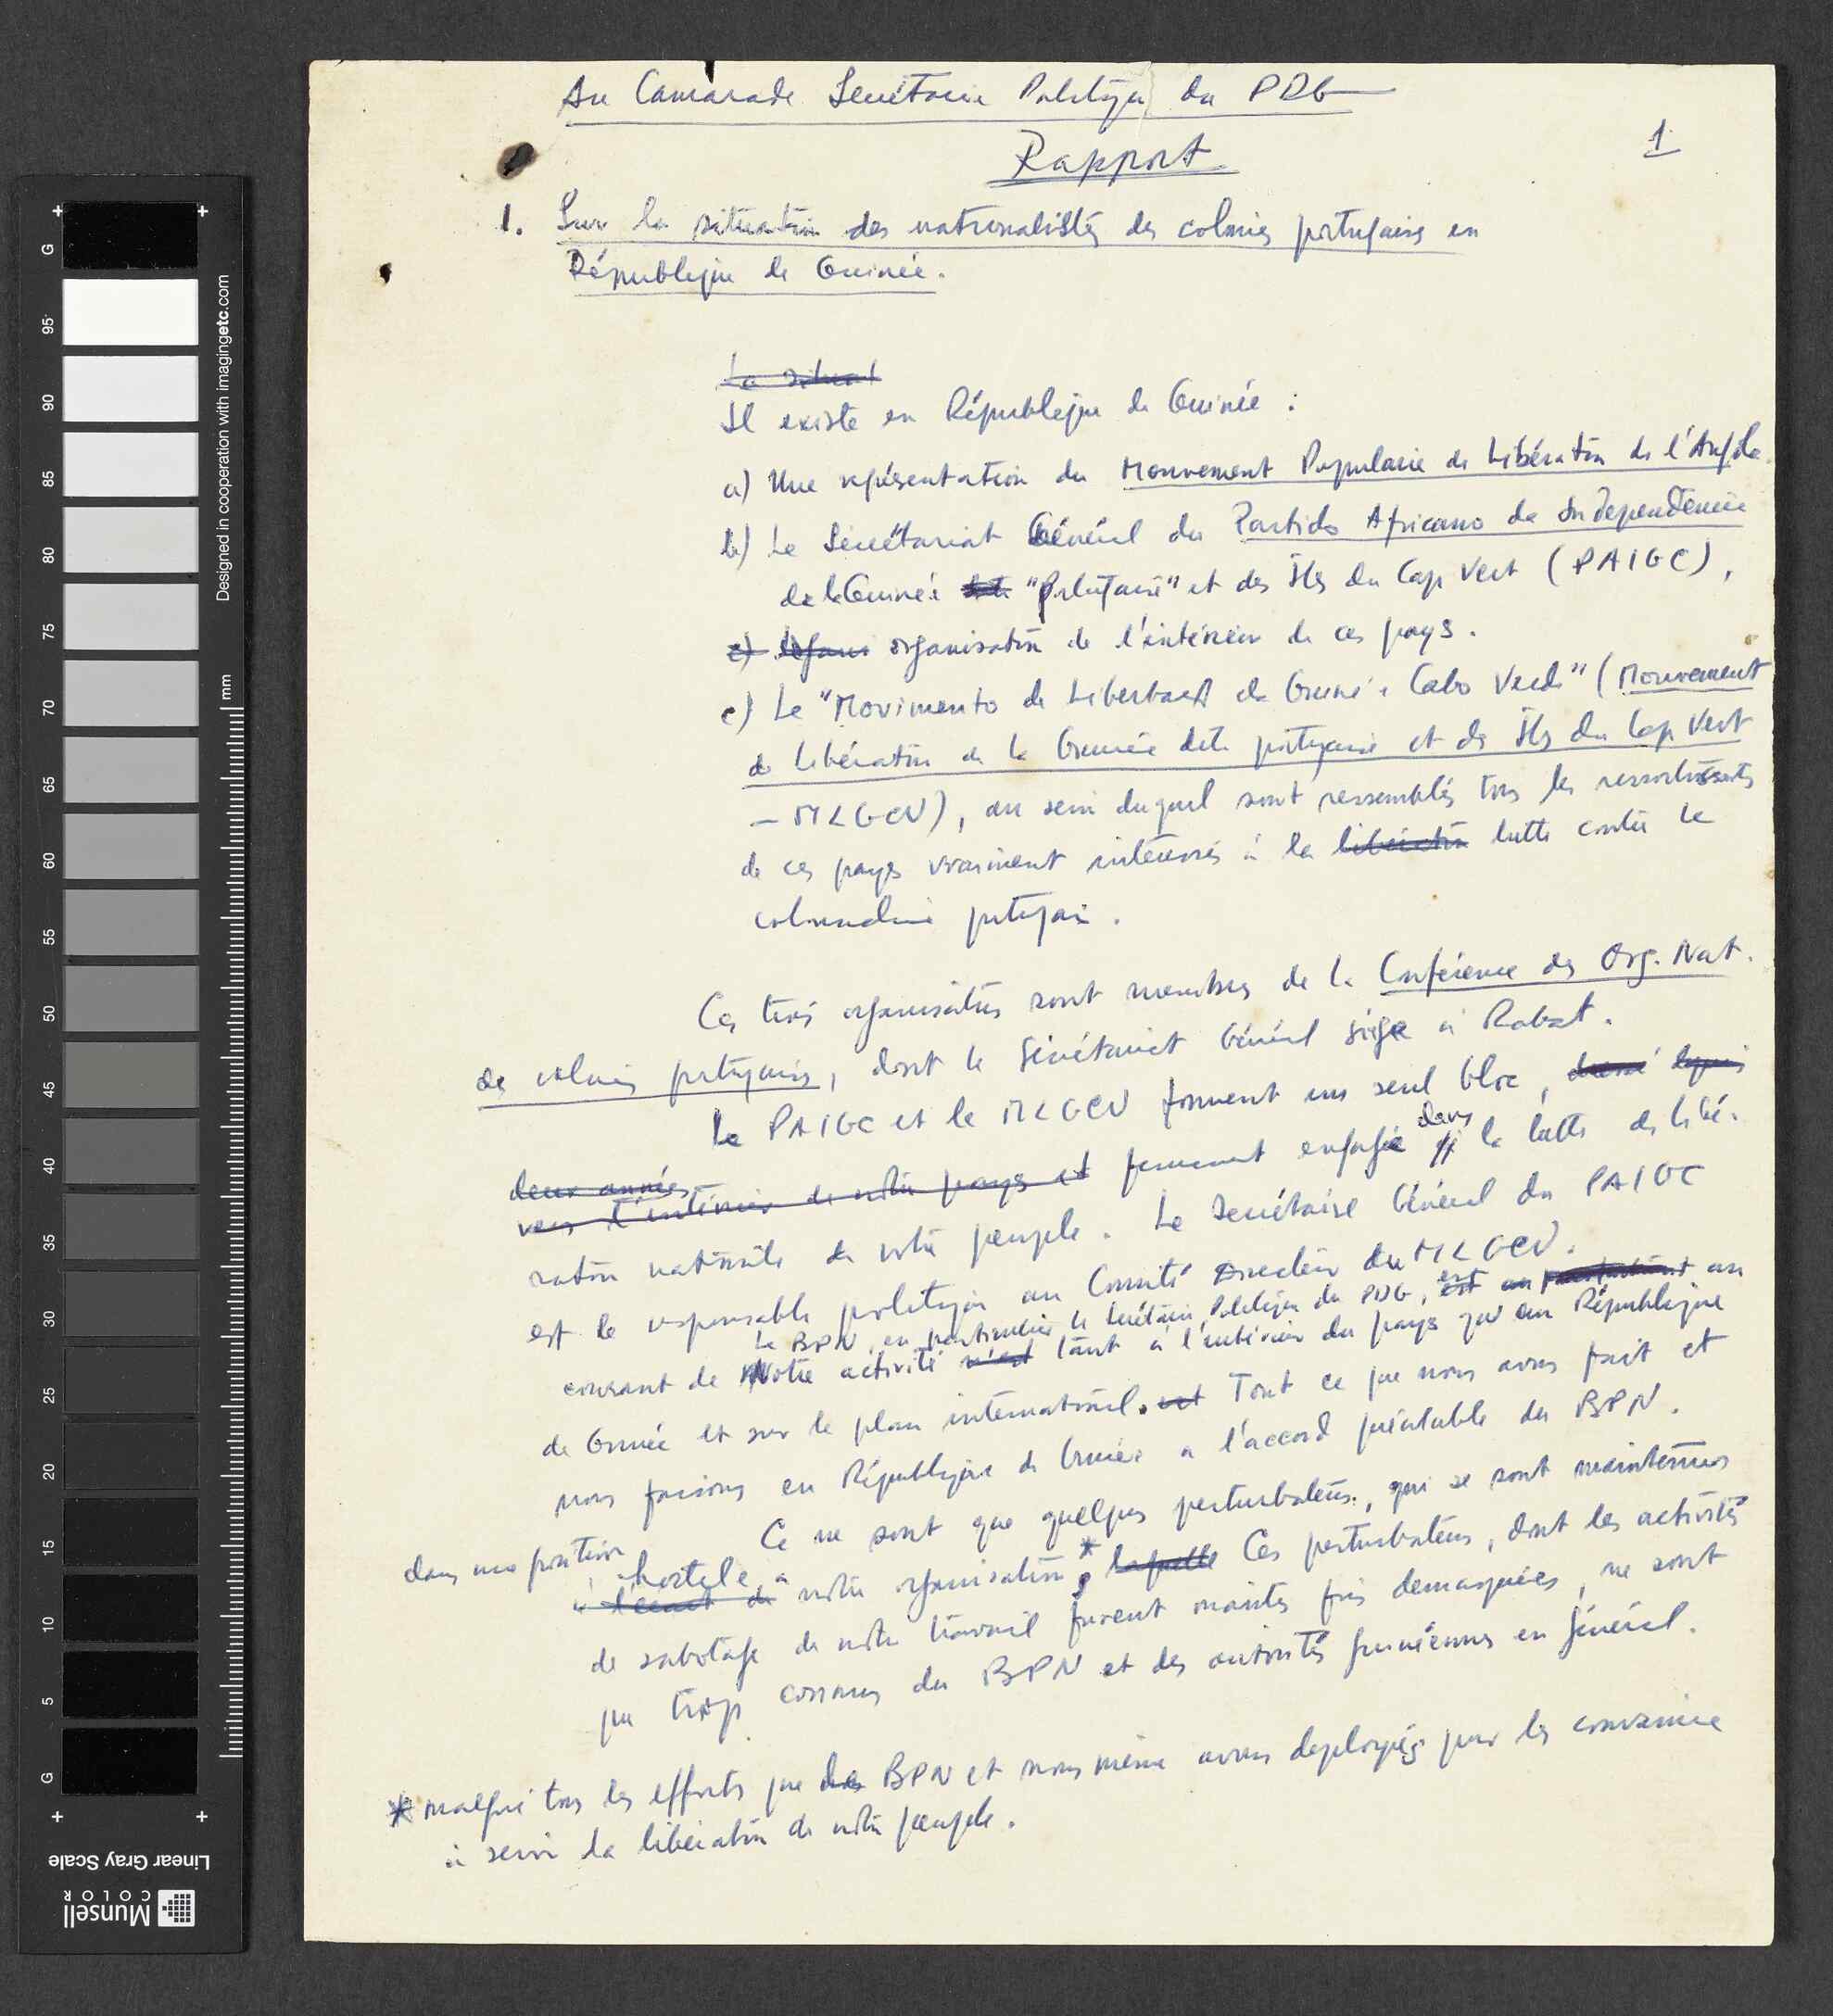 Au Camarade Secrétaire Politique du PDG
Rapport
1
1. Sur la situation des nationalistes des colonies portugaises en
République de Guinée.
La situat
Il existe en République de Guinée :
a) Une représentation du Mouvement Populaire de Libération de l'Angola.
b) Le Secrétariat Général du Partido Africano da Independência
de la Guinée "Portugaise" et des Îles du Cap Vert (PAIGC),
c) organisation de l'intérieur de ces pays.
c) Le "Movimento de Libertação da Guiné e Cabo Verde" (Mouvement
de libération de la Guinée dite portugaise et des Îles du Cap Vert
- MLGCV), au sein duquel sont rassemblés tous les ressortissants
de ces pays vraiment intéressés à la libération lutte contre le
colonialisme portugais.
Ces trois organisations sont membres de la Conférence des Org. Nat.
des colonies portugaises, dont le Secrétariat Général siège à Rabat.
Le PAIGC et le MLGCV forment un seul bloc, depuis
deux années
vers l'intérieur de notre pays et fermement engagé dans la lutte de libé-
ration nationale de notre peuple. Le Secrétaire Général du PAIGC
est le responsable politique au Comité Directeur du MLGCV.
Le BPN, en particulier le Secrétaire Politique du PDG, est au
courant de Notre activité n'est tant à l'intérieur du pays qu'en République
de Guinée et sur le plan international. Tout ce que nous avons fait et
nous faisons en République de Guinée a l'accord préalable du BPN.
Ce ne sont que quelques perturbateurs, qui se sont maintenus
dans une position hostile à
à l'écart de notre organisation * laquelle Ces perturbateurs, dont les activités
de sabotage de notre travail furent maintes fois demasquées, ne sont
que trop connus du BPN et des autorités guinéennes en général.
* malgré tous les efforts que BPN et nous même avons deployés pour les convaincre
à servir la libération de notre peuple.
Designed in cooperation with imagingetc.com
mm
G 95 90 85 80 75 70 65 60 55 50 45 40 35 30 25 20 15 10 5 G
Linear Gray Scale
Munsell
COLOR